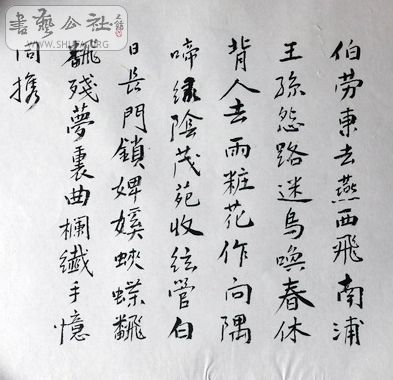 伯勞東去燕西飛南浦
王孫怨路迷鳥喚春休
背人去雨粧花作向隅
啼綠陰茂苑收弦管白
日長門鎖婢㜎蛺蝶飜
飜殘夢裏曲欄纖手憶
同攜
書藝公社